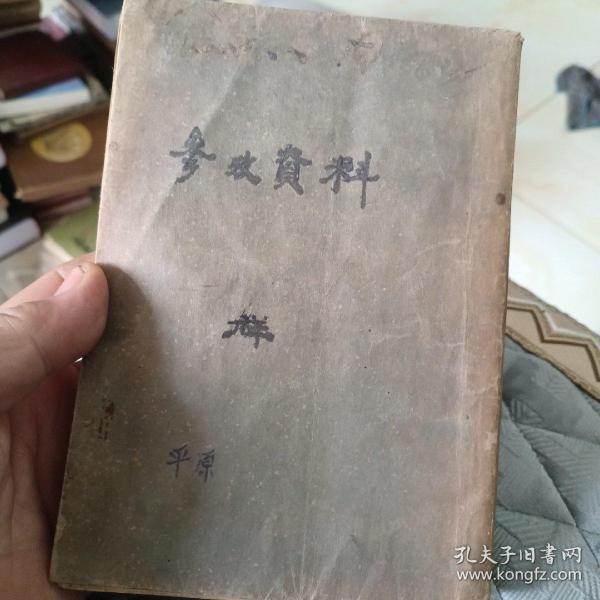 参攷資料
群
平原
孔夫子旧書网
www.kongfz.com